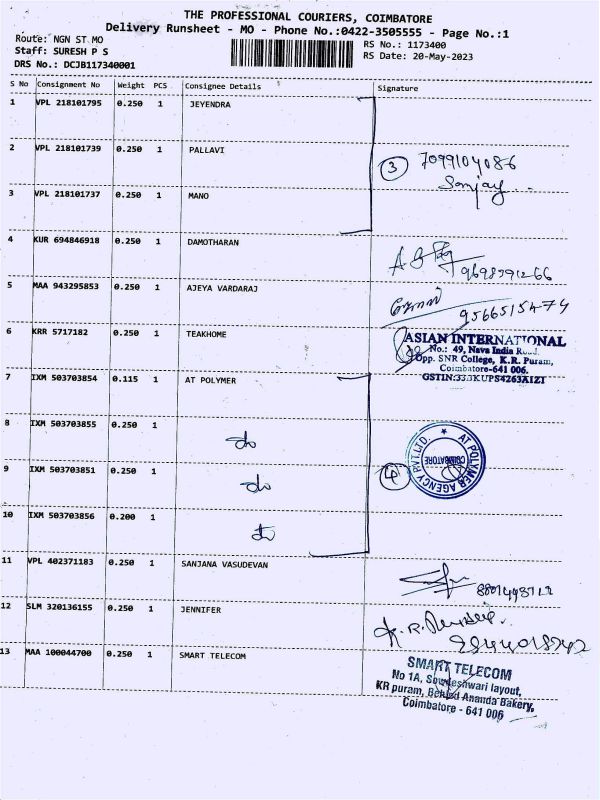 THE PROFESSIONAL COURIERS, COIMBATORE
Delivery Runsheet - MO - Phone No.:0422-3505555 - Page No.:1
Route: NGN ST MO
RS No.: 1173400
Staff: SURESH P S
RS Date: 20-May-2023
DRS No.: DCJB117340001
S No Consignment No Weight PCS Consignee Details Signature
1 VPL 218101795 0.250 1 JEYENDRA
2 VPL 218101739 0.250 1 PALLAVI
3 7099104086
Sanjay
3 VPL 218101737 0.250 1 MANO
4 KUR 694846918 0.250 1 DAMOTHARAN
5 MAA 943295853 0.250 1 AJEYA VARDARAJ
9566515474
6 KRR 5717182 0.250 1 TEAKHOME
ASIAN INTERNATIONAL
No.: 49, Nava India
Opp. SNR College, K.R. Puram,
Coimbatore-641 006.
7 IXM 503703854 0.115 1 AT POLYMER
8 IXM 503703855 0.250 1
do
AT POLYMER AGENCY PVT.LTD.
COIMBATORE
9 IXM 503703851 0.250 1
4
do
10 IXM 503703856 0.200 1
do
11 VPL 402371183 0.250 1 SANJANA VASUDEVAN
12 SLM 320136155 0.250 1 JENNIFER
13 MAA 100044700 0.250 1 SMART TELECOM
SMART TELECOM
No 1A, Sowdeshwari layout,
KR puram, Behind Ananda Bakery,
Coimbatore - 641 006